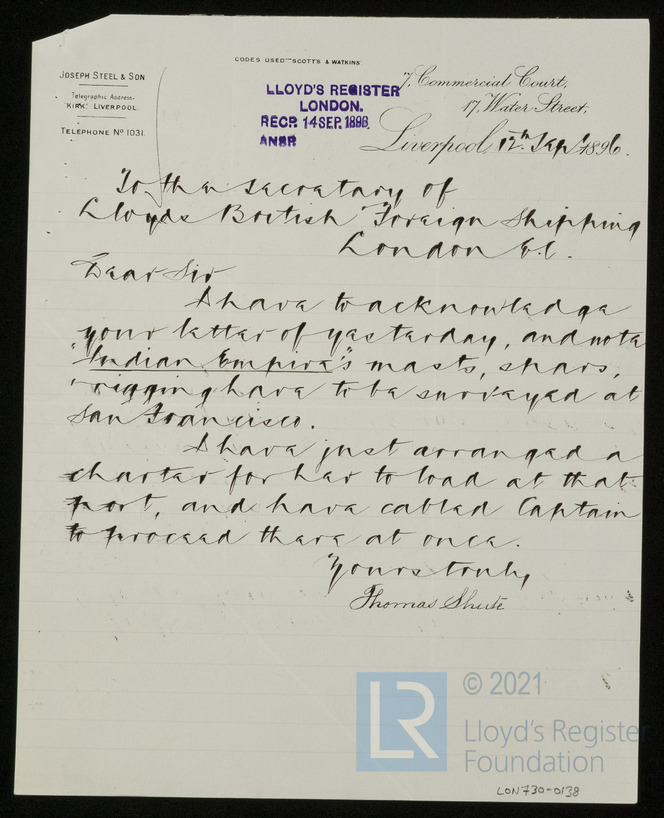 CODES USED "SCOTT'S & WATKINS"
JOSEPH STEEL & SON
Telegraphic Address-
"KIRK" LIVERPOOL.
TELEPHONE No 1031.
LLOYD'S REGISTER
LONDON.
RECP. 14 SEP. 1896
ANSR
7, Commercial Court,
17, Water Street,
Liverpool, 12th Sep 1896.
To the secretary of
Lloyds British Foreign Shipping
London E.C.
Dear Sir
I have to acknowledge
your letter of yesterday, and note
"Indian Empire's" masts, spars,
rigging have to be surveyed at
San Francisco.
I have just arranged a
charter for her to load at that
port, and have cabled Captain
to proceed there at once.
Yours truly,
Thomas Shute
LR
© 2021
Lloyd's Register
Foundation
LON730-0138